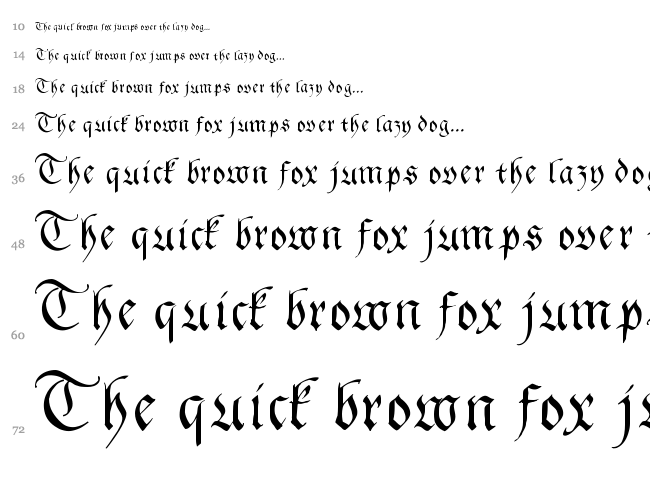 10 The quick brown fox jumps over the lazy dog...
14 The quick brown fox jumps over the lazy dog...
18 The quick brown fox jumps over the lazy dog...
24 The quick brown fox jumps over the lazy dog...
36 The quick brown fox jumps over the lazy dog
48 The quick brown fox jumps over
60 The quick brown fox jump
72 The quick brown fox ju